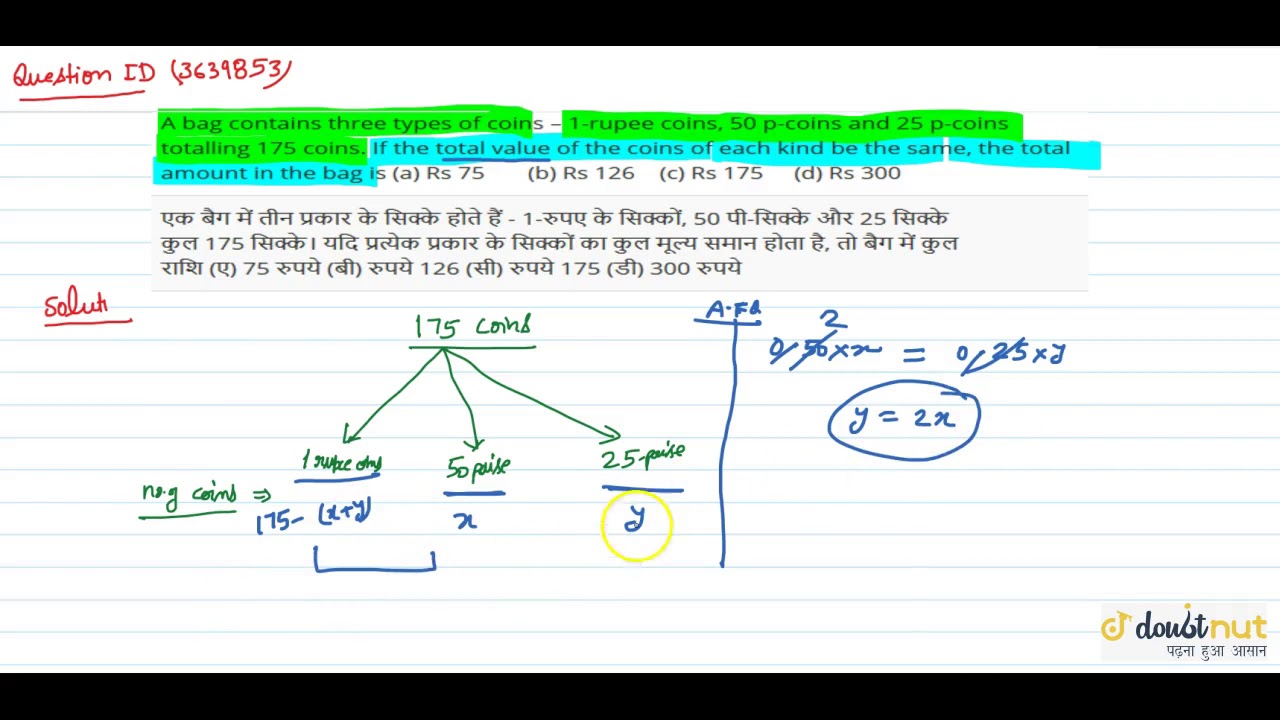 Question ID (3639853)
A bag contains three types of coins – 1-rupee coins, 50 p-coins and 25 p-coins
totalling 175 coins. If the total value of the coins of each kind be the same, the total
amount in the bag is (a) Rs 75 (b) Rs 126 (c) Rs 175 (d) Rs 300
एक बैग में तीन प्रकार के सिक्के होते हैं - 1-रुपए के सिक्कों, 50 पी-सिक्के और 25 सिक्के
कुल 175 सिक्के। यदि प्रत्येक प्रकार के सिक्कों का कुल मूल्य समान होता है, तो बैग में कुल
राशि (ए) 75 रुपये (बी) रुपये 126 (सी) रुपये 175 (डी) 300 रुपये
Soluti
175 coins
A.F.Q
2
0.50×x = 0.25×y
y = 2x
1 rupee coins 50 paise 25-paise
no.g coins ⇒
175- (x+y) x y
doubtnut
पढ़ना हुआ आसान